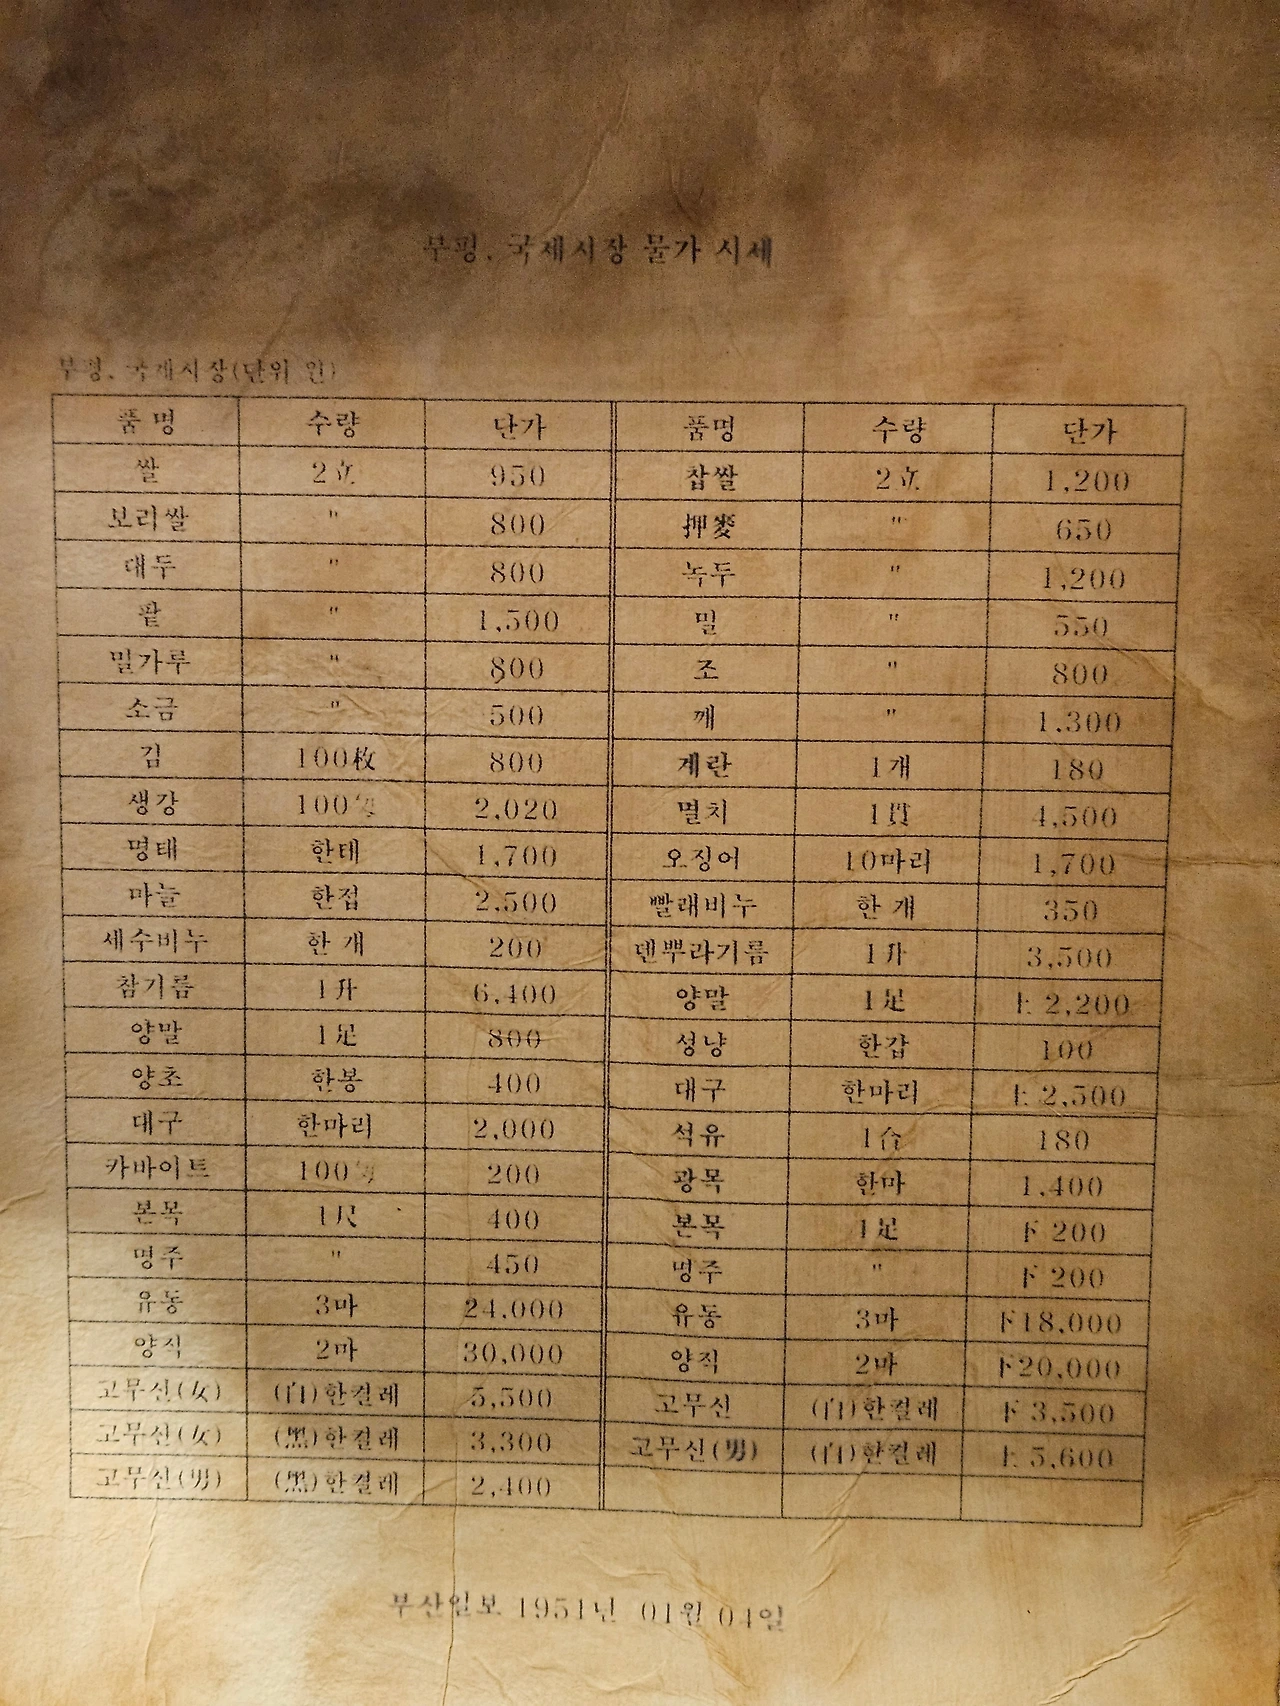 부평. 국제시장 물가 시세
부평. 국제시장(단위 원)
품 명 수량 단가 품명 수량 단가
쌀 2立 950 찹쌀 2立 1,200
보리쌀 " 800 押麥 " 650
대두 " 800 녹두 " 1,200
팥 " 1,500 밀 " 550
밀가루 " 800 조 " 800
소금 " 500 깨 " 1,300
김 100枚 800 계란 1개 180
생강 100匁 2,020 멸치 1貫 4,500
명태 한태 1,700 오징어 10마리 1,700
마늘 한접 2,500 빨래비누 한 개 350
세수비누 한 개 200 덴뿌라기름 1升 3,500
참기름 1升 6,400 양말 1足 上 2,200
양말 1足 800 성냥 한갑 100
양초 한봉 400 대구 한마리 上 2,500
대구 한마리 2,000 석유 1合 180
카바이트 100匁 200 광목 한마 1,400
본목 1尺 400 본목 1足 下 200
명주 " 450 명주 " 下 200
유동 3마 24,000 유동 3마 下18,000
양직 2마 30,000 양직 2마 下20,000
고무신(女) (白)한켤레 5,500 고무신 (白)한켤레 下 3,500
고무신(女) (黑)한켤레 3,300 고무신(男) (白)한켤레 上 5,600
고무신(男) (黑)한켤레 2,400
부산일보 1951년 01월 04일